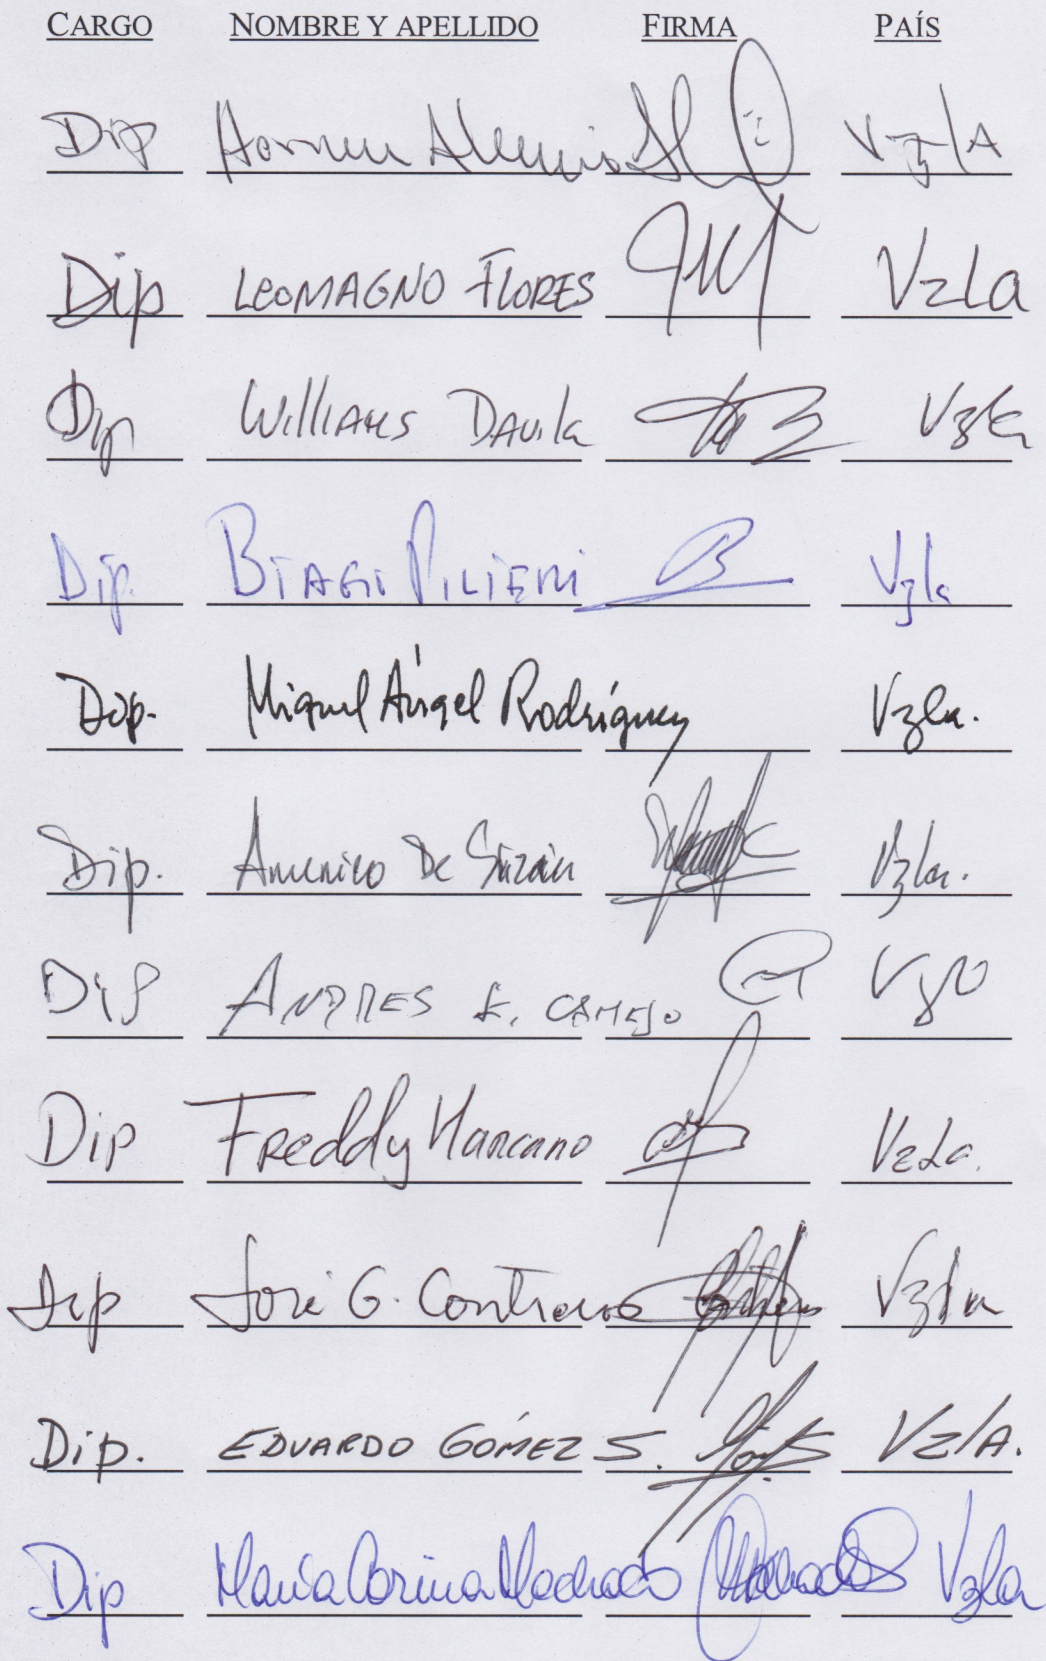 CARGO NOMBRE Y APELLIDO FIRMA PAÍS
Dip Hernan Alemán VzlA
Dip LEOMAGNO FLORES Vzla
Dip Williams Davila Vzla
Dip. BIAGIO PILIERI Vzla
Dip. Miguel Ángel Rodríguez Vzla.
Dip. Americo De Grazia Vzla.
Dip ANDRES E. CAMEJO Vzla
Dip Freddy Marcano Vzla.
Dip José G. Contreras Vzla
Dip. EDUARDO GÓMEZ S. VzlA.
Dip María Corina Machado Machado Vzla